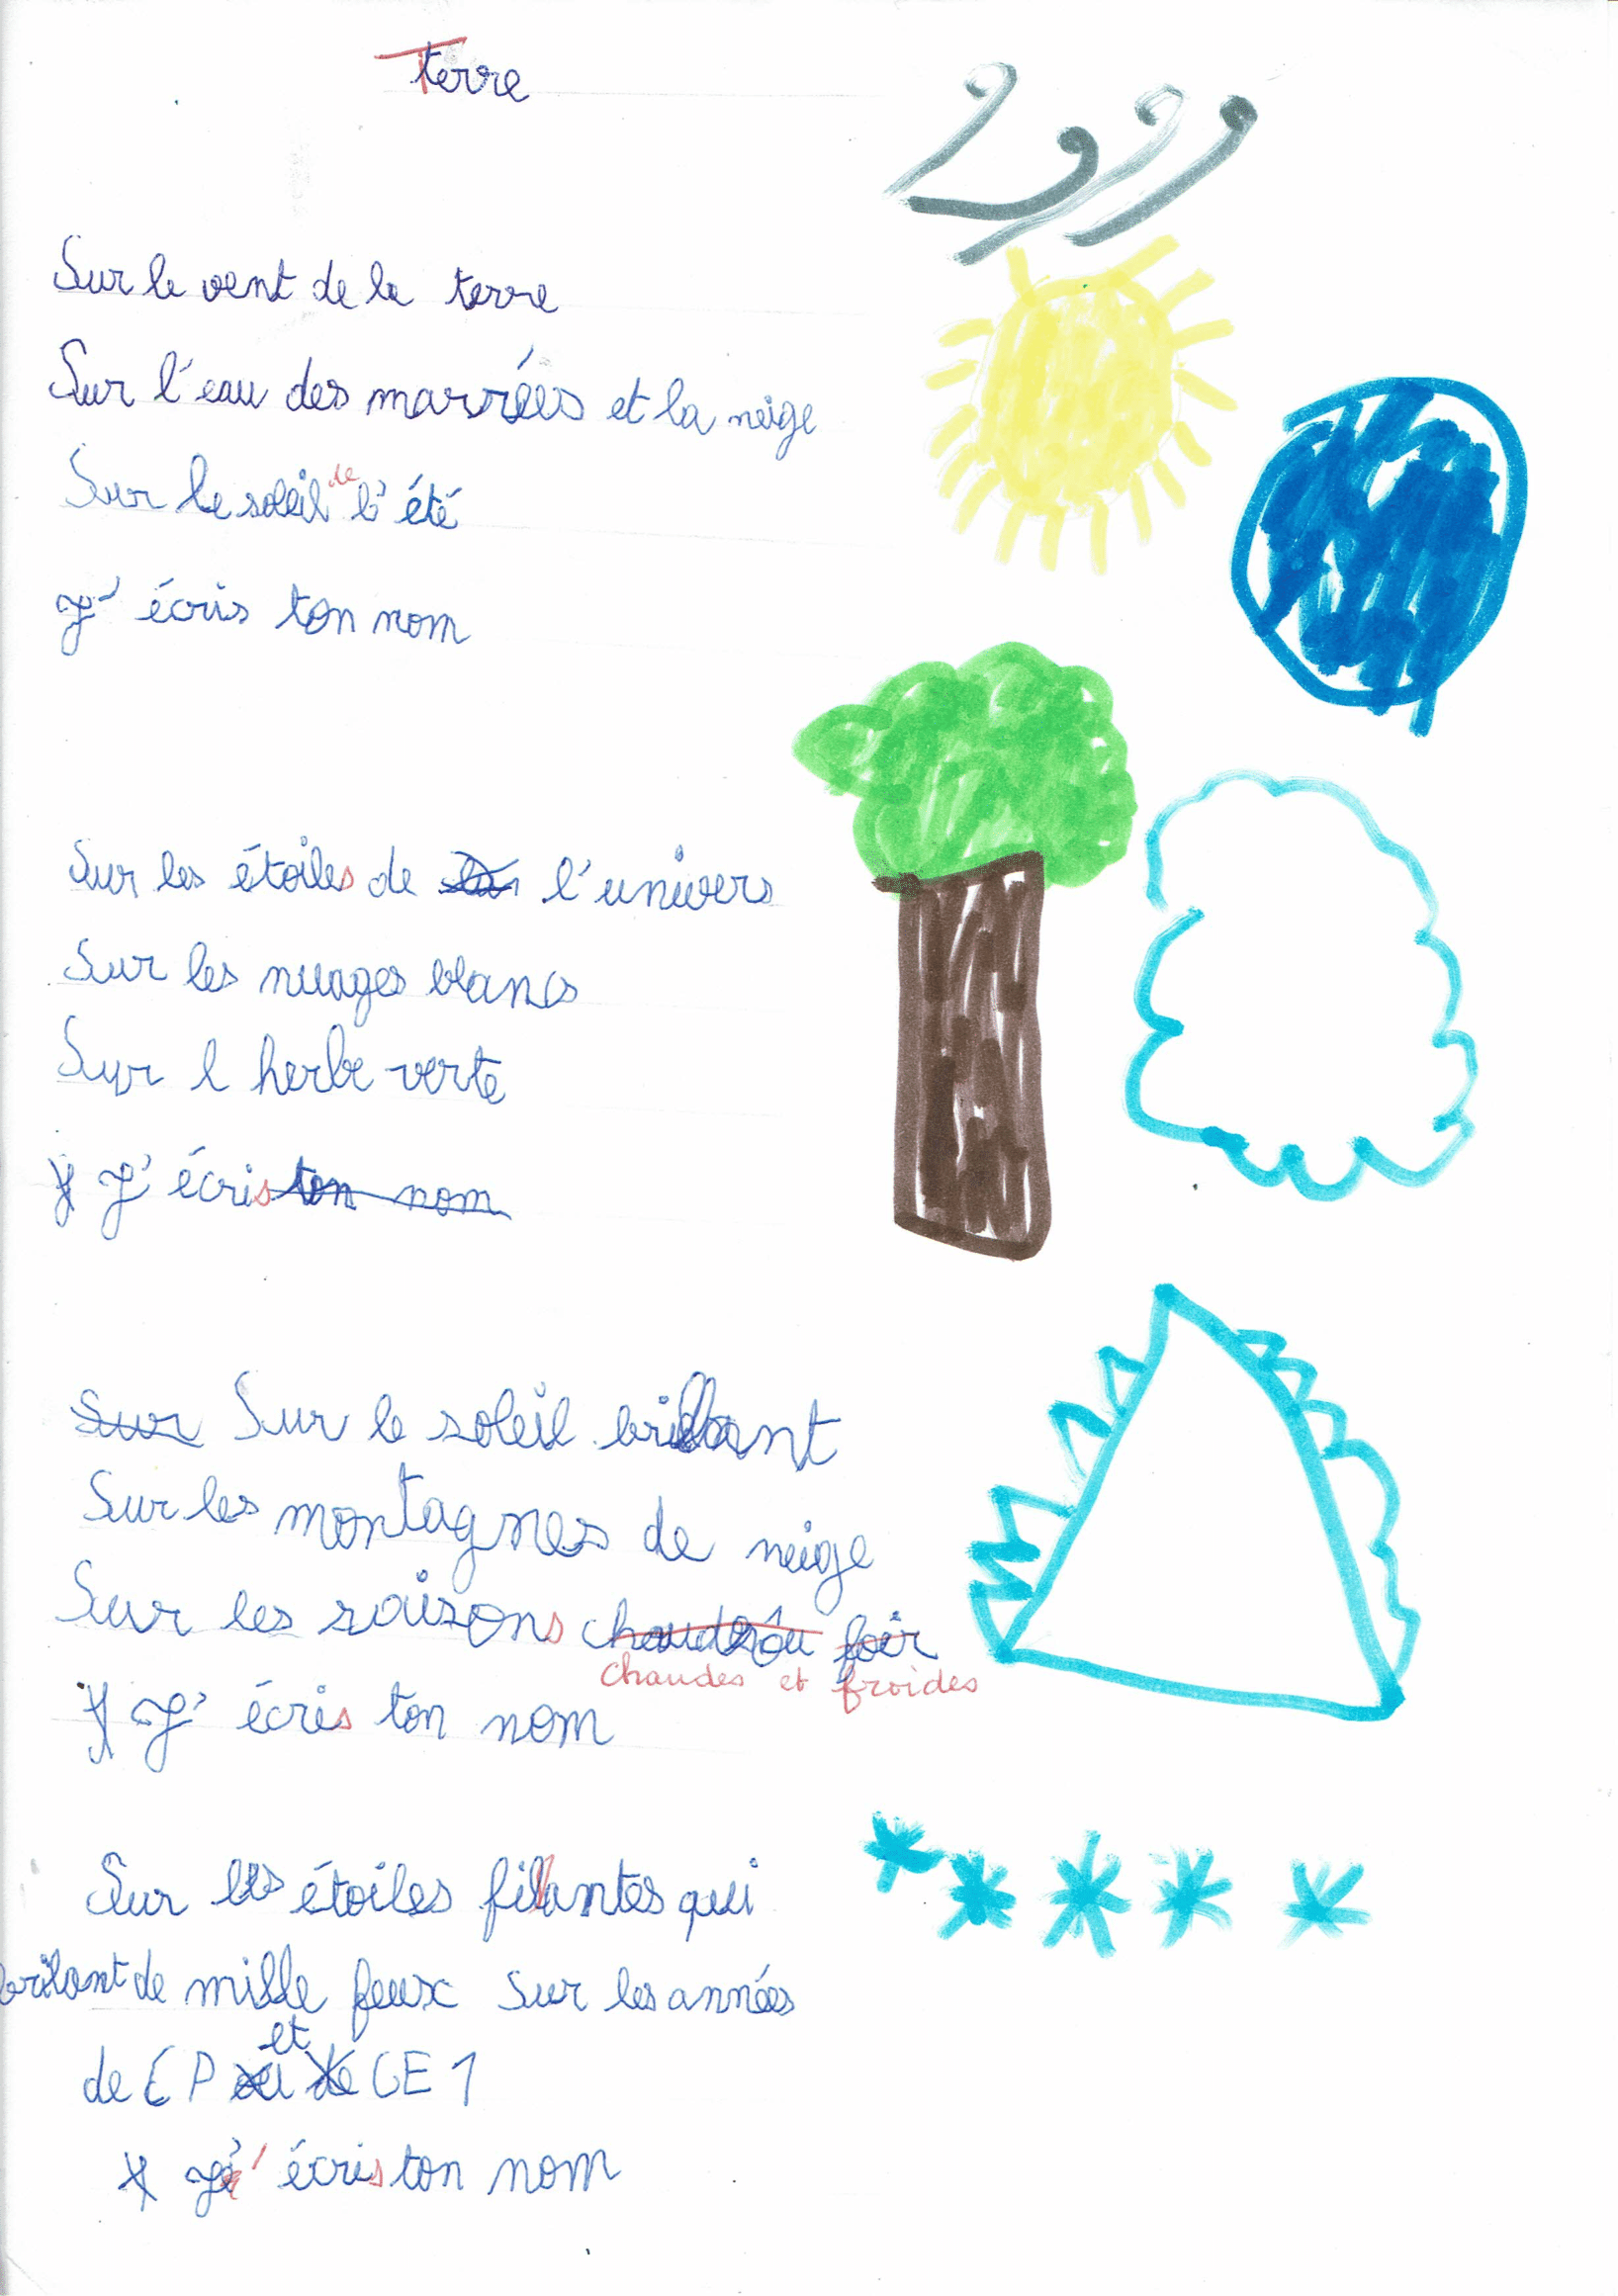 Terre
Sur le vent de la terre
Sur l'eau des marrées et la neige
Sur le soleil de l'été
J' écris ton nom
Sur les étoiles de l'univers
Sur les nuages blancs
Sur l herbe verte
J' écris ton nom
Sur Sur le soleil brillant
Sur les montagnes de neige
Sur les saisons chaudes ou foir
chaudes et froides
J' écris ton nom
Sur les étoiles filantes qui
brilant de mille feux sur les années
de CP et CE1
J' écris ton nom